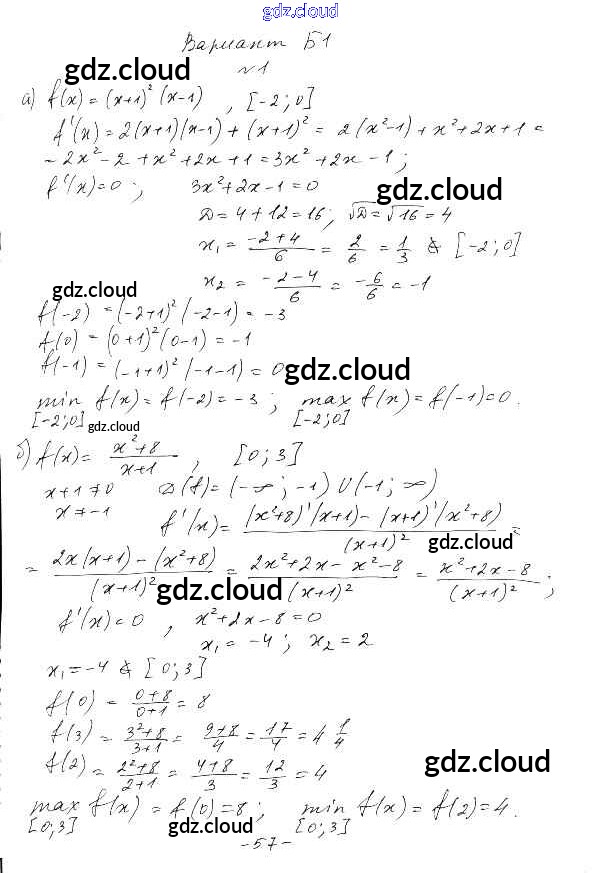 gdz.cloud
Вариант Б1
gdz.cloud
№1
а) f(x) = (x+1)² (x-1) , [-2; 0]
f'(x) = 2(x+1)(x-1) + (x+1)² = 2(x²-1) + x² + 2x + 1 =
= 2x² - 2 + x² + 2x + 1 = 3x² + 2x - 1 ;
f'(x) = 0 ; 3x² + 2x - 1 = 0
gdz.cloud
D = 4 + 12 = 16 ; √D = √16 = 4
x₁ = (-2+4)/6 = 2/6 = 1/3 ∉ [-2; 0]
x₂ = (-2-4)/6 = -6/6 = -1
gdz.cloud
f(-2) = (-2+1)² (-2-1) = -3
f(0) = (0+1)² (0-1) = -1
f(-1) = (-1+1)² (-1-1) = 0
gdz.cloud
min f(x) = f(-2) = -3 ; max f(x) = f(-1) = 0 .
[-2; 0] [-2; 0]
gdz.cloud
б) f(x) = (x²+8)/(x+1) , [0; 3]
x + 1 ≠ 0 D(f) = (-∞; -1) ∪ (-1; ∞)
x ≠ -1
f'(x) = ((x²+8)'(x+1) - (x+1)'(x²+8))/(x+1)² =
gdz.cloud
= (2x(x+1) - (x²+8))/(x+1)² = (2x² + 2x - x² - 8)/(x+1)² = (x² + 2x - 8)/(x+1)² ;
gdz.cloud
f'(x) = 0 , x² + 2x - 8 = 0
x₁ = -4 ; x₂ = 2
x₁ = -4 ∉ [0; 3]
f(0) = (0+8)/(0+1) = 8
f(3) = (3²+8)/(3+1) = (9+8)/4 = 17/4 = 4 1/4
f(2) = (2²+8)/(2+1) = (4+8)/3 = 12/3 = 4
gdz.cloud
max f(x) = f(0) = 8 ; min f(x) = f(2) = 4 .
[0; 3] [0; 3]
gdz.cloud
- 57 -